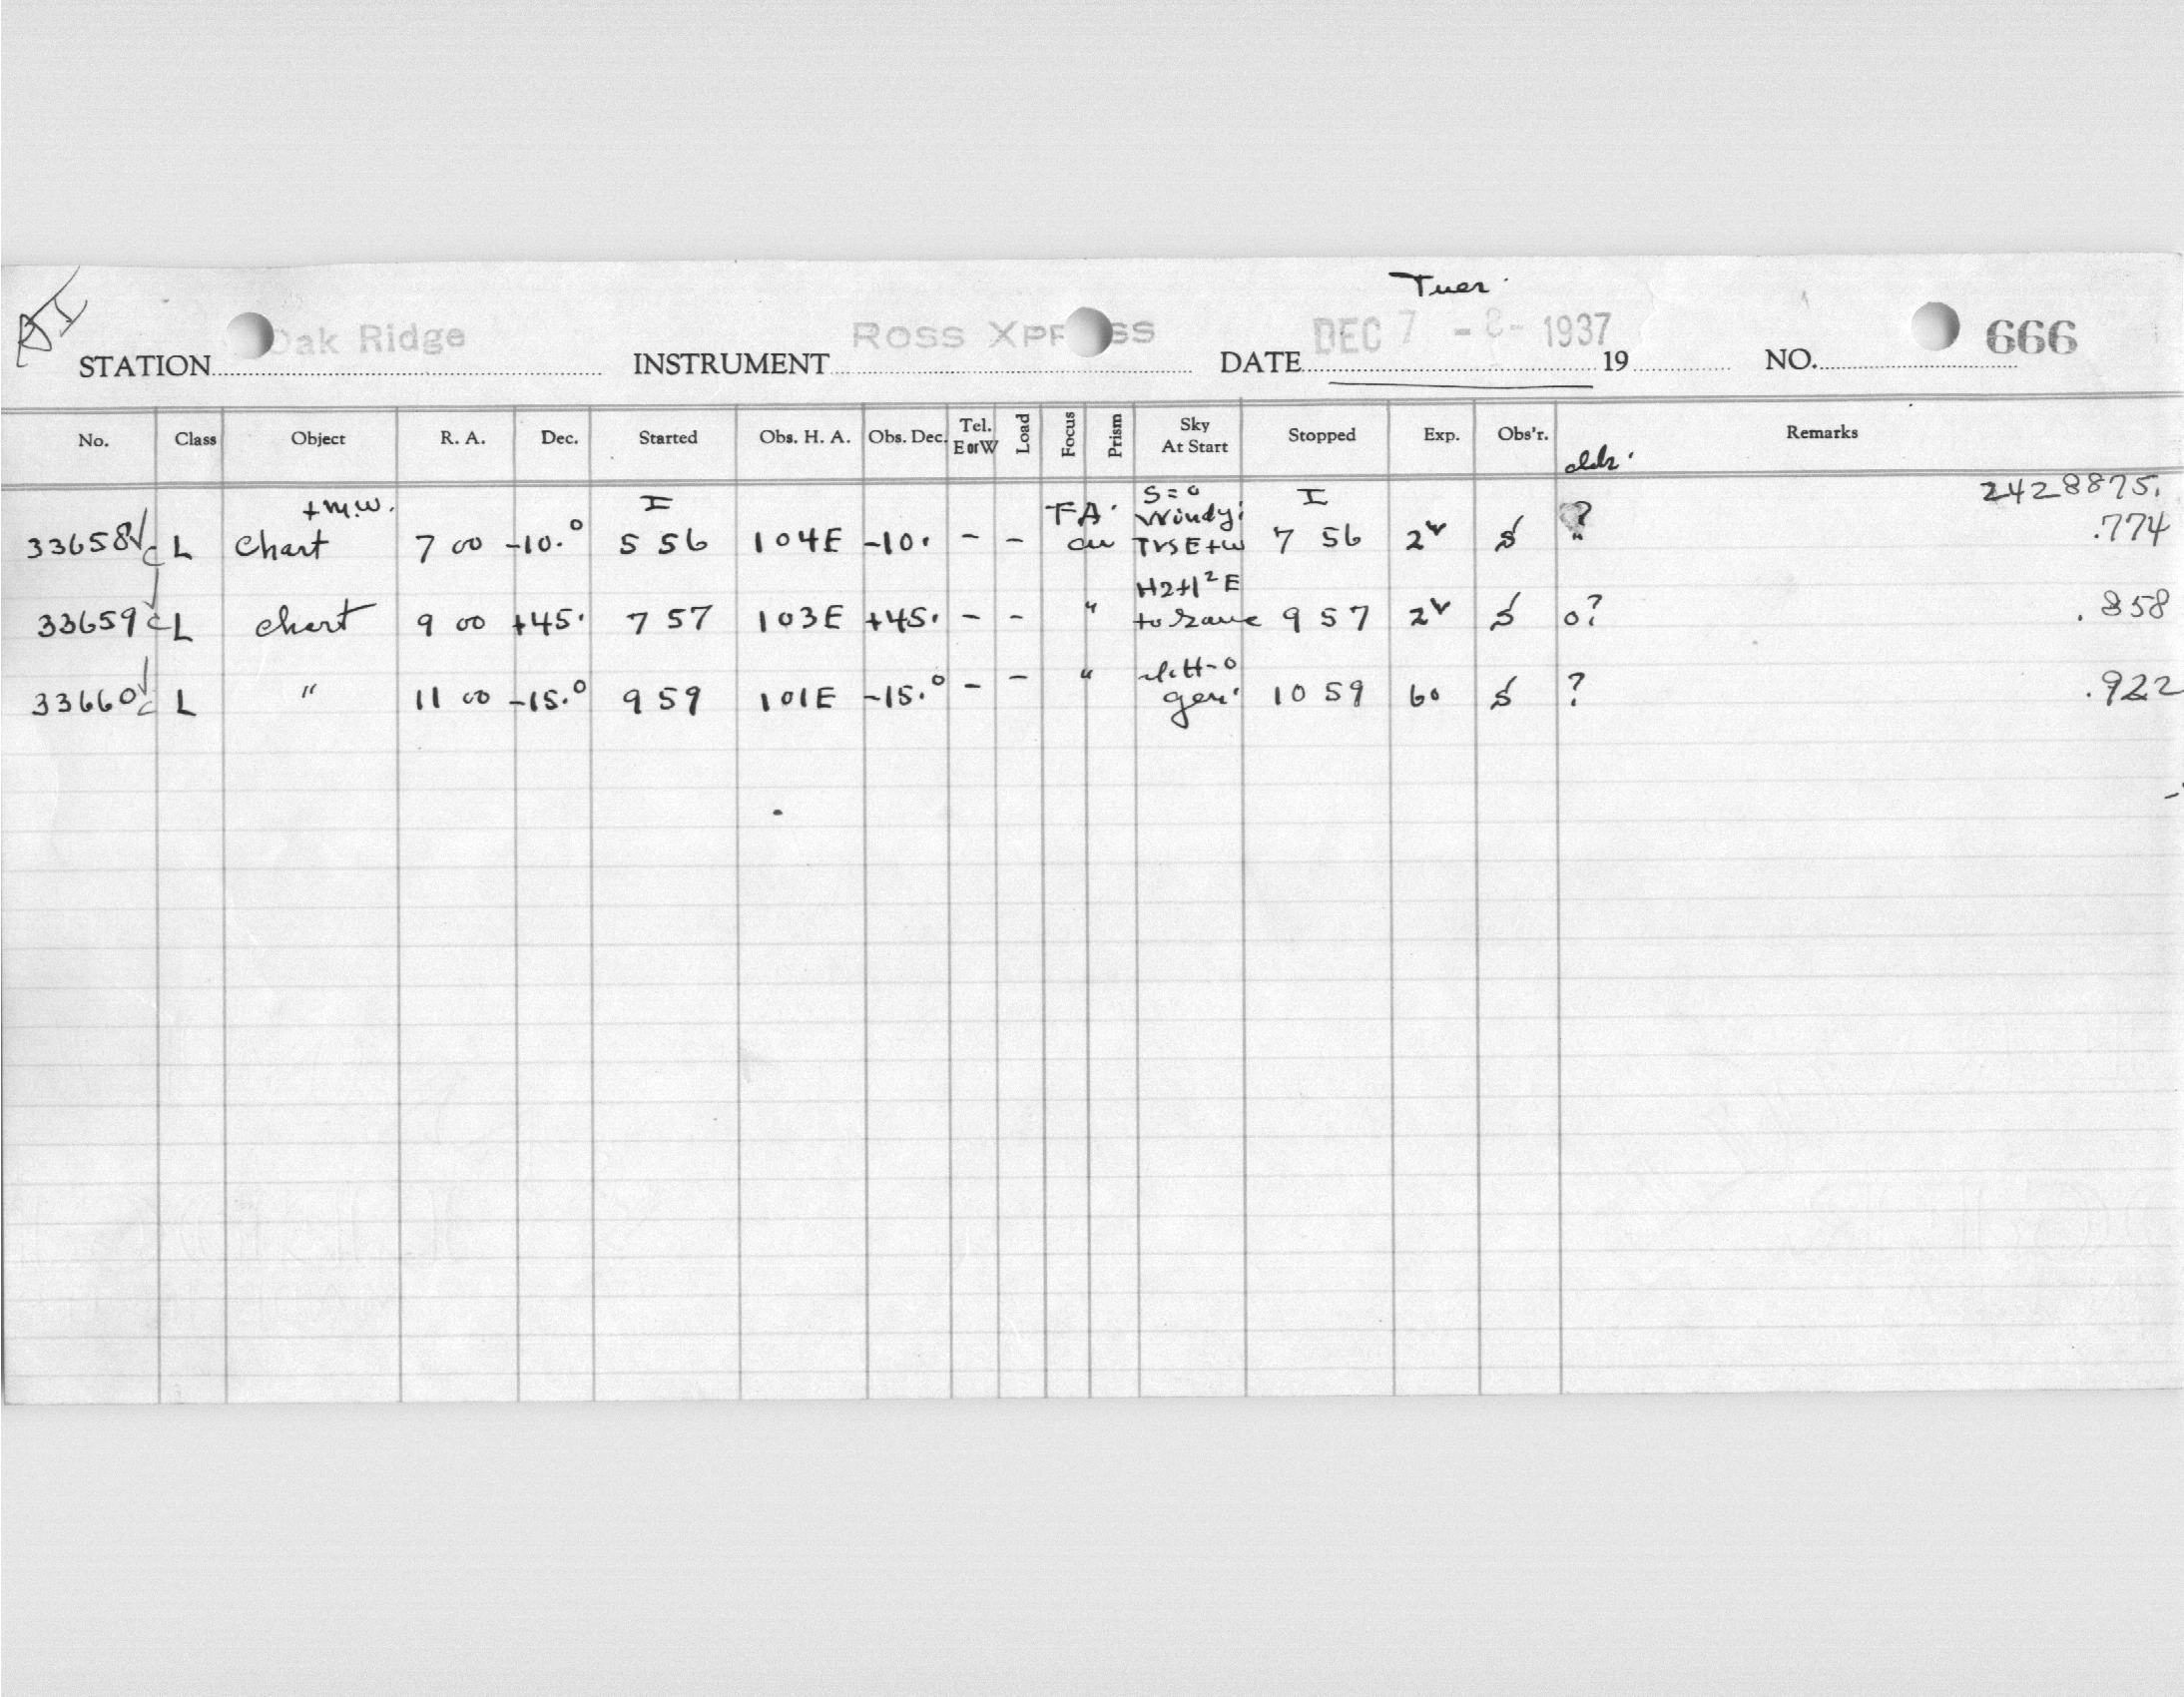 Tues.
RI
STATION Oak Ridge INSTRUMENT ROSS XPRESS DATE DEC 7 - 8 - 1937 19 NO. 666
No. Class Object R. A. Dec. Started Obs. H. A. Obs. Dec. Tel. E or W Load Focus Prism Sky At Start Stopped Exp. Obs'r. Remarks
+ m.w. I S = 0 I 2428875.
FA. Windy:
33658 c L Chart 7 00 -10.° 5 56 104E -10. - - TVS E+W 7 56 2 S ? .774
H2+1² E
33659 c L Chart 9 00 +45. 7 57 103E +45. - - " to 9 57 2 S 0? .858
33660 c L " 11 00 -15.° 9 59 101E -15.° - - " H-0 10 59 60 S ? .922